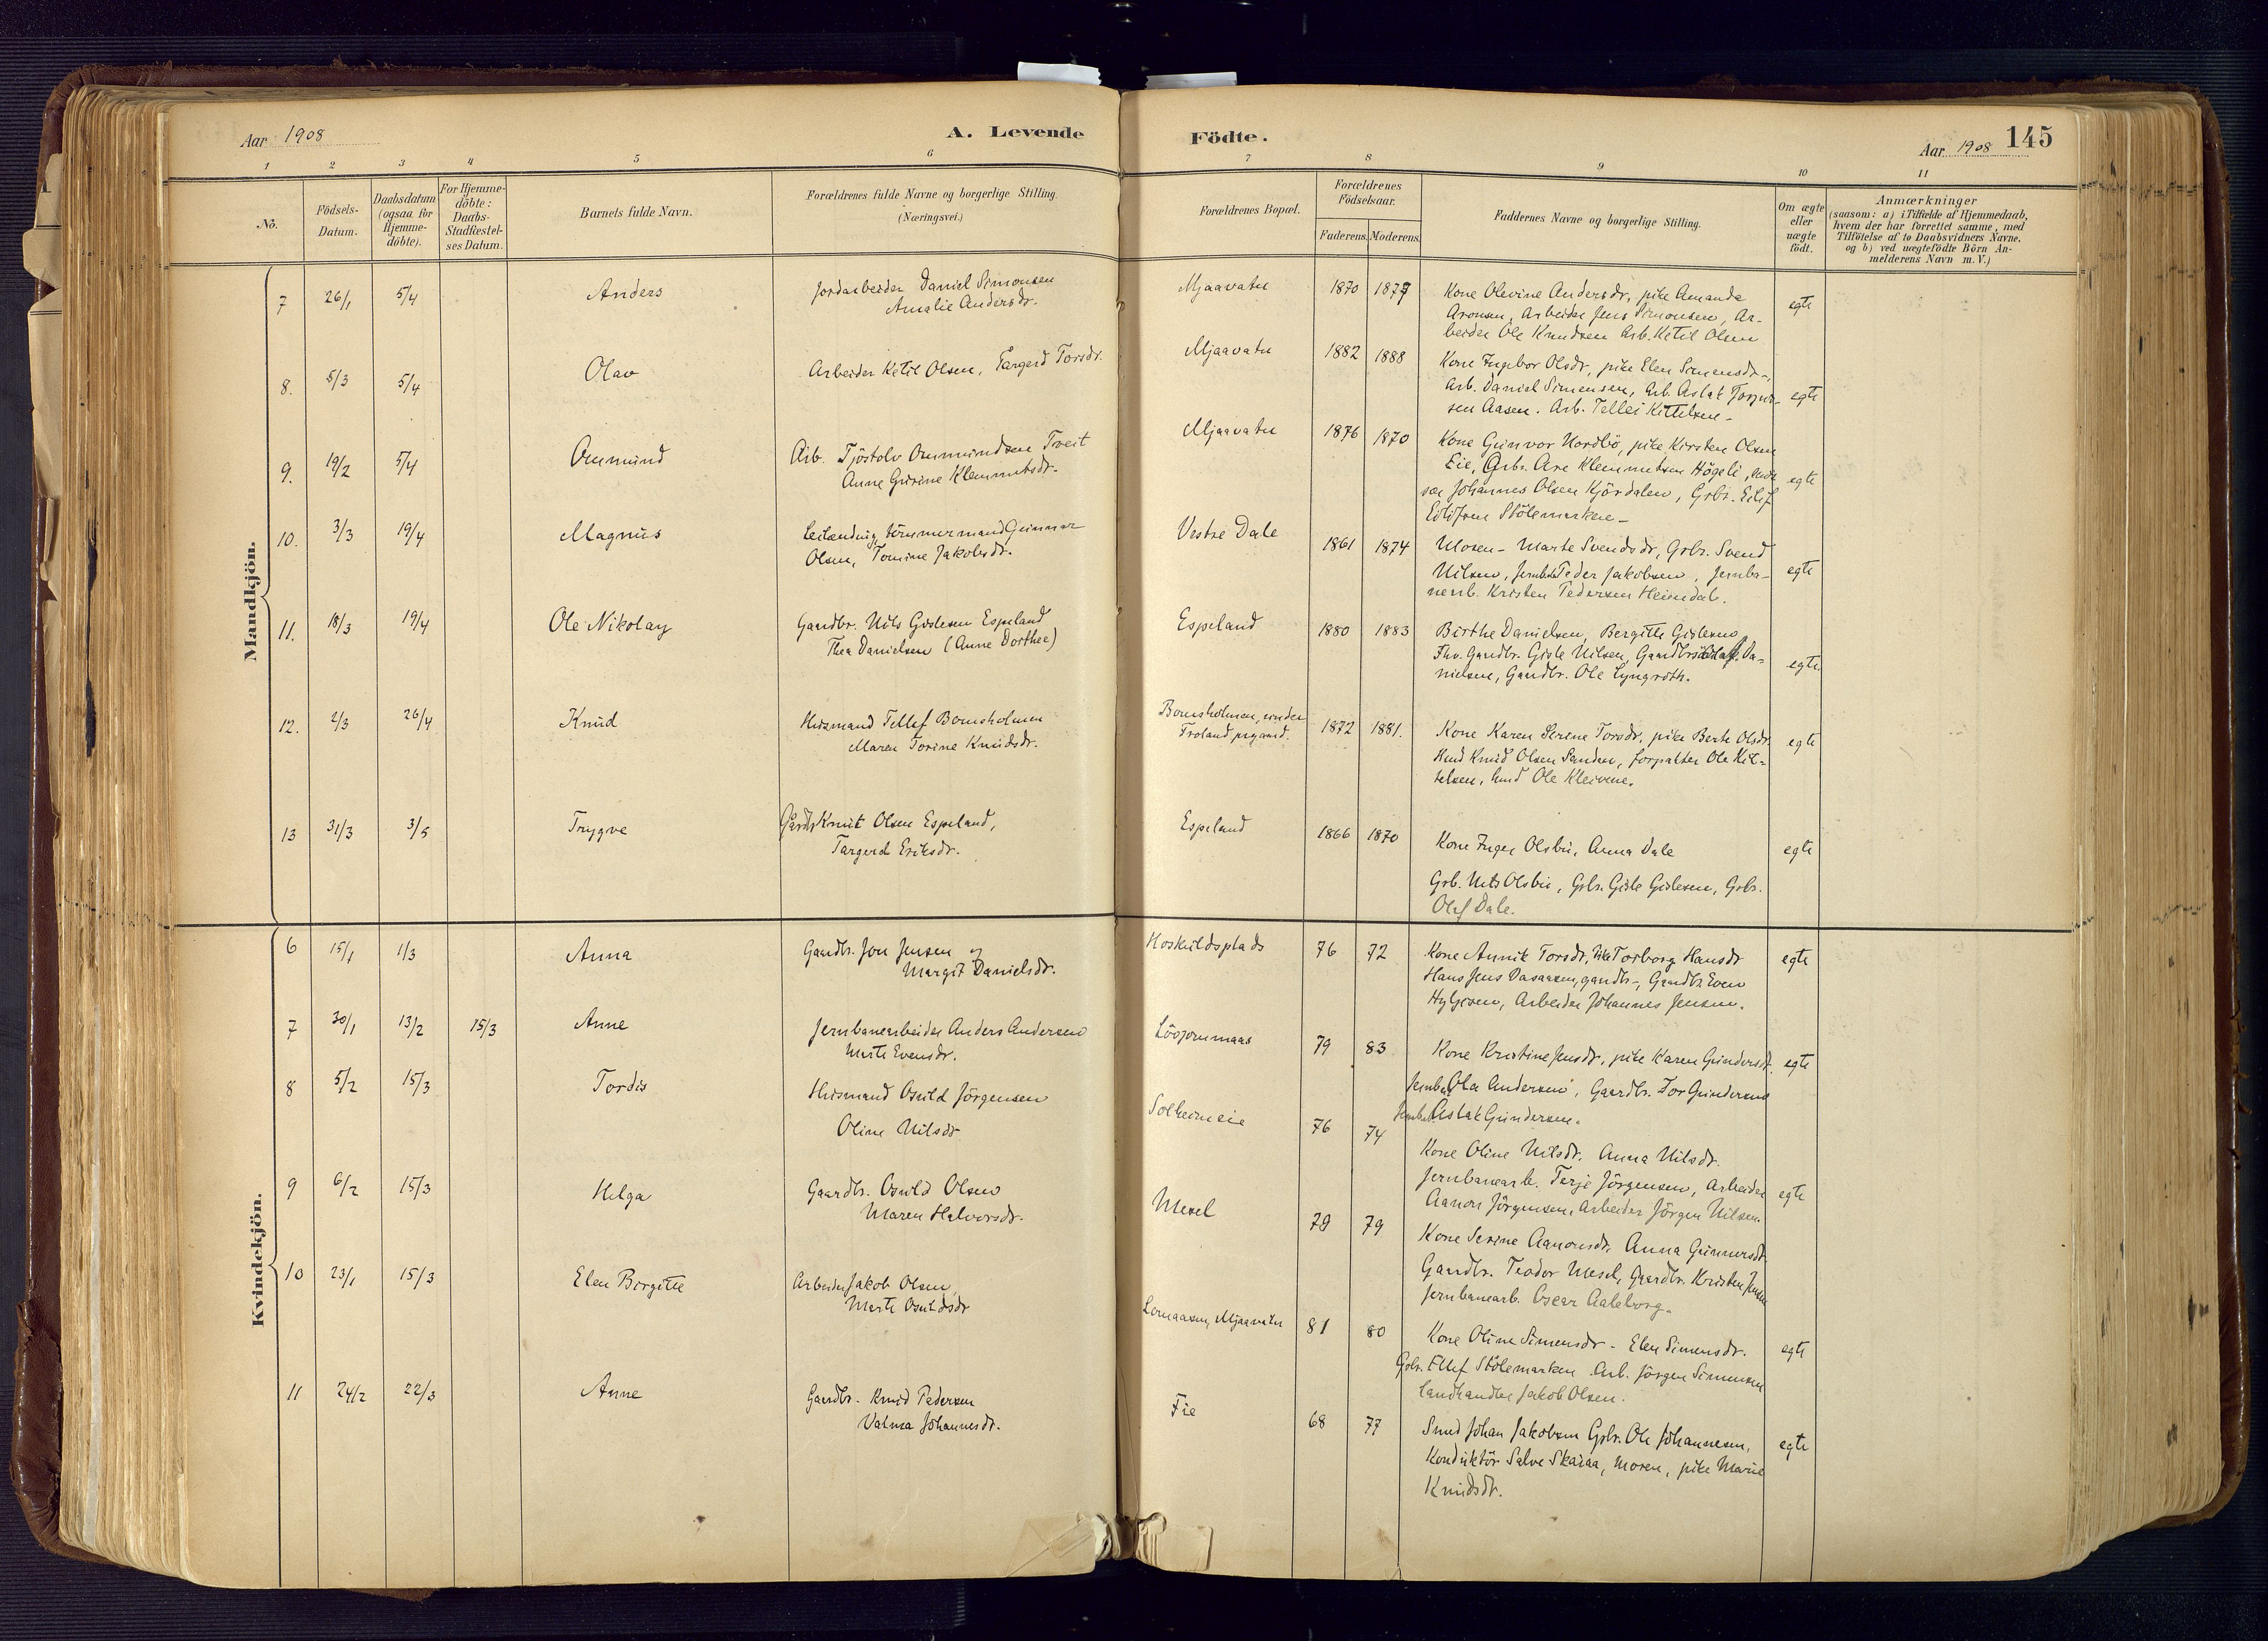 Aar 1908
A. Levende
Födte.
Aar 1908 145
1 2 3 4 5 6 7 8 9 10 11
No.
Födsels-
Datum.
Daabsdatum
(ogsaa for
Hjemme-
döbte).
For Hjemme-
döbte:
Daabs-
Stadfæstel-
ses Datum.
Barnets fulde Navn.
Forældrenes fulde Navne og borgerlige Stilling.
(Næringsvei.)
Forældrenes Bopæl.
Forældrenes
Födselsaar.
Faderens. Moderens.
Faddernes Navne og borgerlige Stilling.
Om ægte
eller
uægte
födt.
Anmærkninger
(saasom: a) i Tilfælde af Hjemmedaab,
hvem der har forrettet samme, med
Tilföielse af to Daabsvidners Navne,
og b) ved uægtefödte Börn An-
melderens Navn m. V.)
Mandkjön.
7 26/1 5/4 Anders
Jordarbeider Daniel Simonsen
Amalie Andersdr.
Mjaavatn 1870 1877
Kone Olevine Andersdr, pike Amanda
Aronsen, Arbeider Jens Simonsen, Ar-
beider Ole Knudsen Arb. Ketil Olsen
egte
8. 5/3 5/4 Olav
Arbeider Ketil Olsen, Targerd Torsdr.
Mjaavatn 1882 1888
Kone Ingebor Olsdr, pike Elen Simensdr-,
Arb. Daniel Simensen, Arb. Aslak
sen Aasen. Arb. Tellei Kittelsen-
egte
9. 19/2 5/4 Omund
Arb. Tjöstolv Ommundsen Tveit
Anne Gurine Klemmetsdr.
Mjaavatn 1876 1870
Kone Gunvor Nordbö, pike Kirsten Olsen
Eie, Grbr. Are Klemmetsen Högeli,
Johannes Olsen Kjördalen, Grbr. Eilif
Eilifsen Stölemarken-
egte
10. 3/3 19/4 Magnus
Leilænding, tömmermand Gunnar
Olsen, Tomine Jakobsdr.
Vestre Dale 1861 1874
Moren- Marte Svendsdr, Grbr. Svend
Nilsen, Jernb. Peder Jakobsen, Jernba-
nearb. Kristen Pedersen Heimdal.
egte
11. 18/3 19/4 Ole Nikolay
Gaardbr. Nils Gislesen Espeland
Thea Danielsen (Anne Dorthee)
Espeland 1880 1883
Birthe Danielsen, Bergitte Gislesen,
Fhv. Gaardbr. Gisle Nilsen, Da-
nielsen, Gaardbr. Ole Lyngroth.
egte
12. 2/3 26/4 Knud
Husmand Tellef Bomsholmen
Maren Torine Knudsdr.
Bomsholmen, under
Froland prgaard. 1872 1881.
Kone Karen Serine Torsdr, pike Berte Olsdr.
Husmd Knud Olsen Sanden, forpakter Ole Kit-
telsen, husmd Ole Kleivene.
egte
13 31/3 3/5 Trygve
Gårdbr Knut Olsen Espeland,
Targerd Eriksdr.
Espeland 1866 1870
Kone Inger Olsbu, Anna Dale
Grb. Nils Olsbu, Grbr. Gisle Gislesen, Grbr.
Olef Dale.
egte
Kvindekjön.
6 15/1 1/3 Anna
Gaardbr. Jon Jensen og
Margit Danielsdr.
Hoskildsplads 76 72
Kone Annik Torsdr, Torborg Hansdr
Hans Jens, gaardbr-, Gaardbr. Even
Arbeider Johannes Jensen.
egte
7 30/1 13/2 15/3 Anne
Jernbanearbeider Anders Andersen
Marte Evensdr.
79 83
Kone Kristine Jensdr, pike Karen Gundersdr.
Ola Andersen, Gaardbr. Tor Gundersen
Aslak Gundersen.
egte
8 5/2 15/3 Tordis
Husmand Osuld Jörgensen
Oline Nilsdr
Solheimeie 76 74
Kone Oline Nilsdr. Anna Nilsdr.
Jernbanearb. Terje Jörgensen, Arbeider
Aanon Jörgensen, Arbeider Jörgen Nilsen.
egte
9 6/2 15/3 Helga
Gaardbr. Osuld Olsen
Maren Halvorsdr.
Mesel 79
Kone Serine Aanonsdr, Anna Gunnersdr.
Gaardbr. Teodor Mesel, Gaardbr. Kristen Jensen
Jernbanearb. Oscar Aaleborg.
10 23/1 15/3 Elen Birgitte
Arbeider Jakob Olsen,
Marte Osuldsdr
Lomaasen, Mjaavatn 81 80
Kone Oline Simensdr- Elen Simensdr.
Grbr. Ellef Stölemarken Arb. Jörgen Simensen
Landhandler Jakob Olsen.
egte
11 24/2 22/3 Anne
Gaardbr. Knud Pedersen
Valma Johannesdr.
Fie 68 77
Smed Johan Jakobsen Grbr. Ole Johannesen,
Konduktör Salve Skaiaa, moren, pike Marie
Knudsdr.
egte